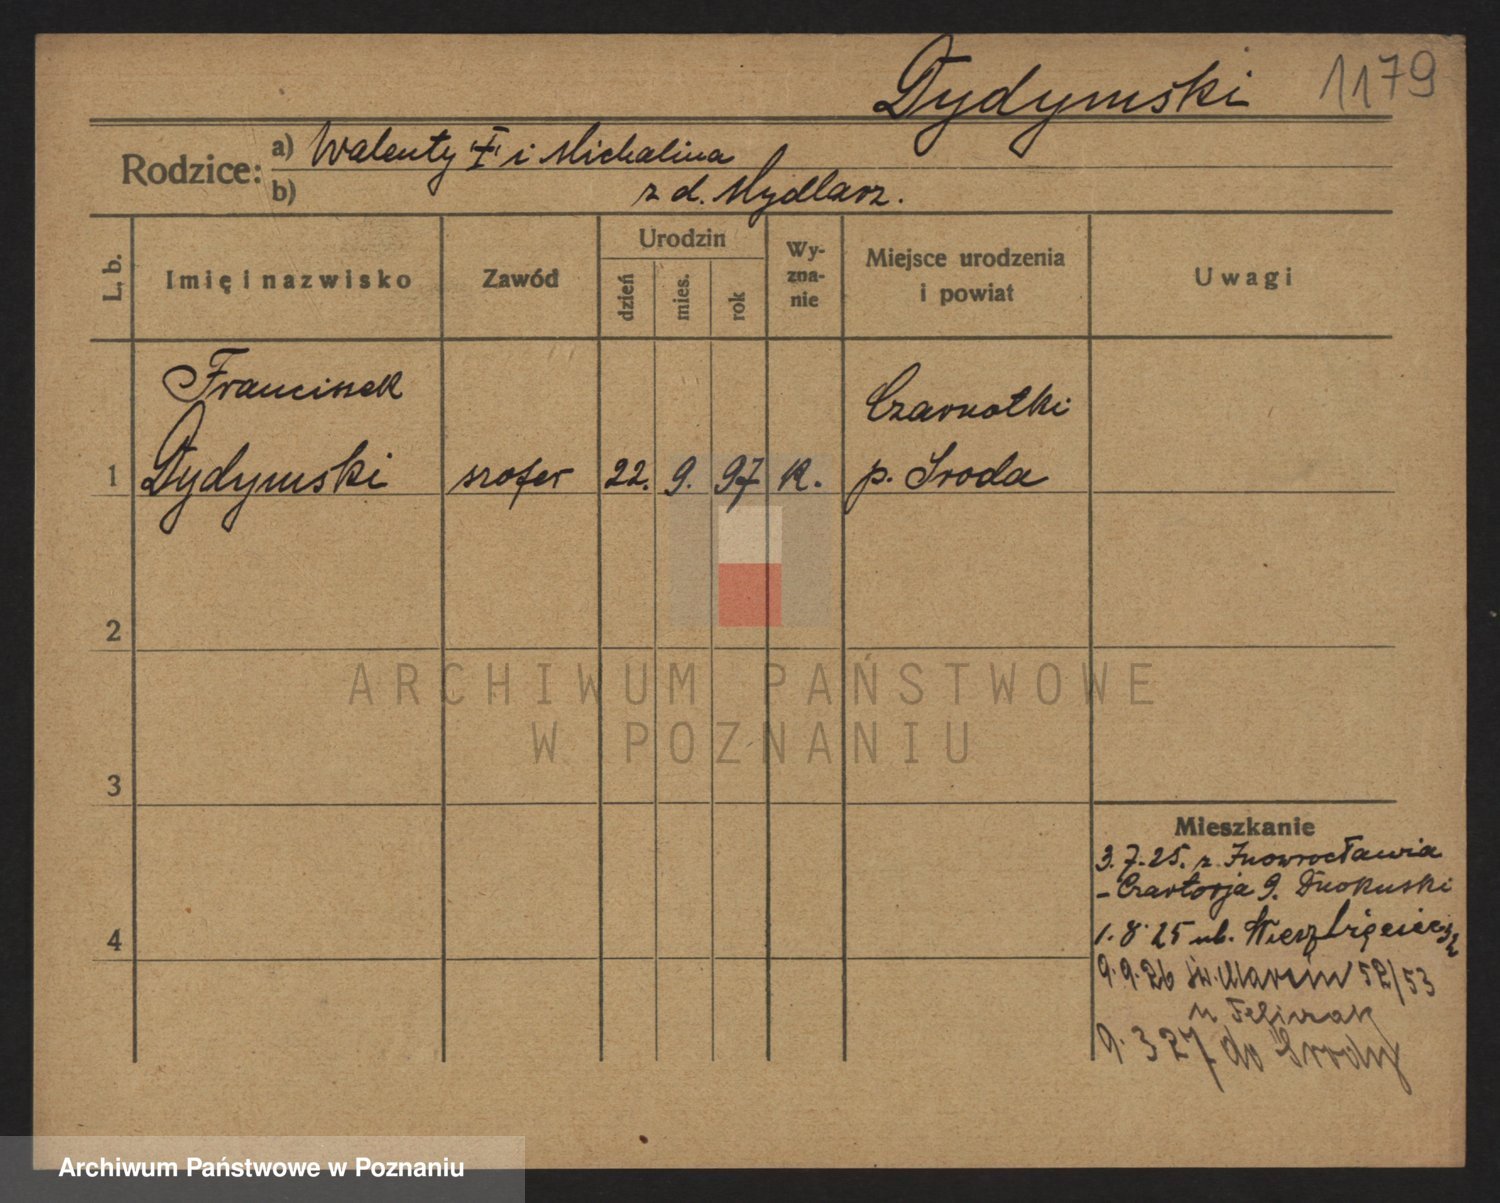 Dydymski 1179
Rodzice: a) Walenty "I" i Michalina
b) z d. Mydlarz.
L. b.
Imię i nazwisko
Zawód
Urodzin
dzień
mies.
rok
Wy-
zna-
nie
Miejsce urodzenia
i powiat
Uwagi
Franciszek
Czarnotki
1 Dydymski szofer 22. 9. 97 K. p. Sroda
2
3
4
Mieszkanie
3.7.25. z Inowrocławia
- Czartorja 9.
1.8 25 ub.
9.9.26 św. Marcin 52/53
9.3 27 do Srody
ARCHIWUM PAŃSTWOWE
W POZNANIU
Archiwum Państwowe w Poznaniu